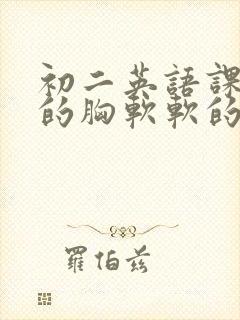 初二英語課
的胸軟軟的
羅伯茲